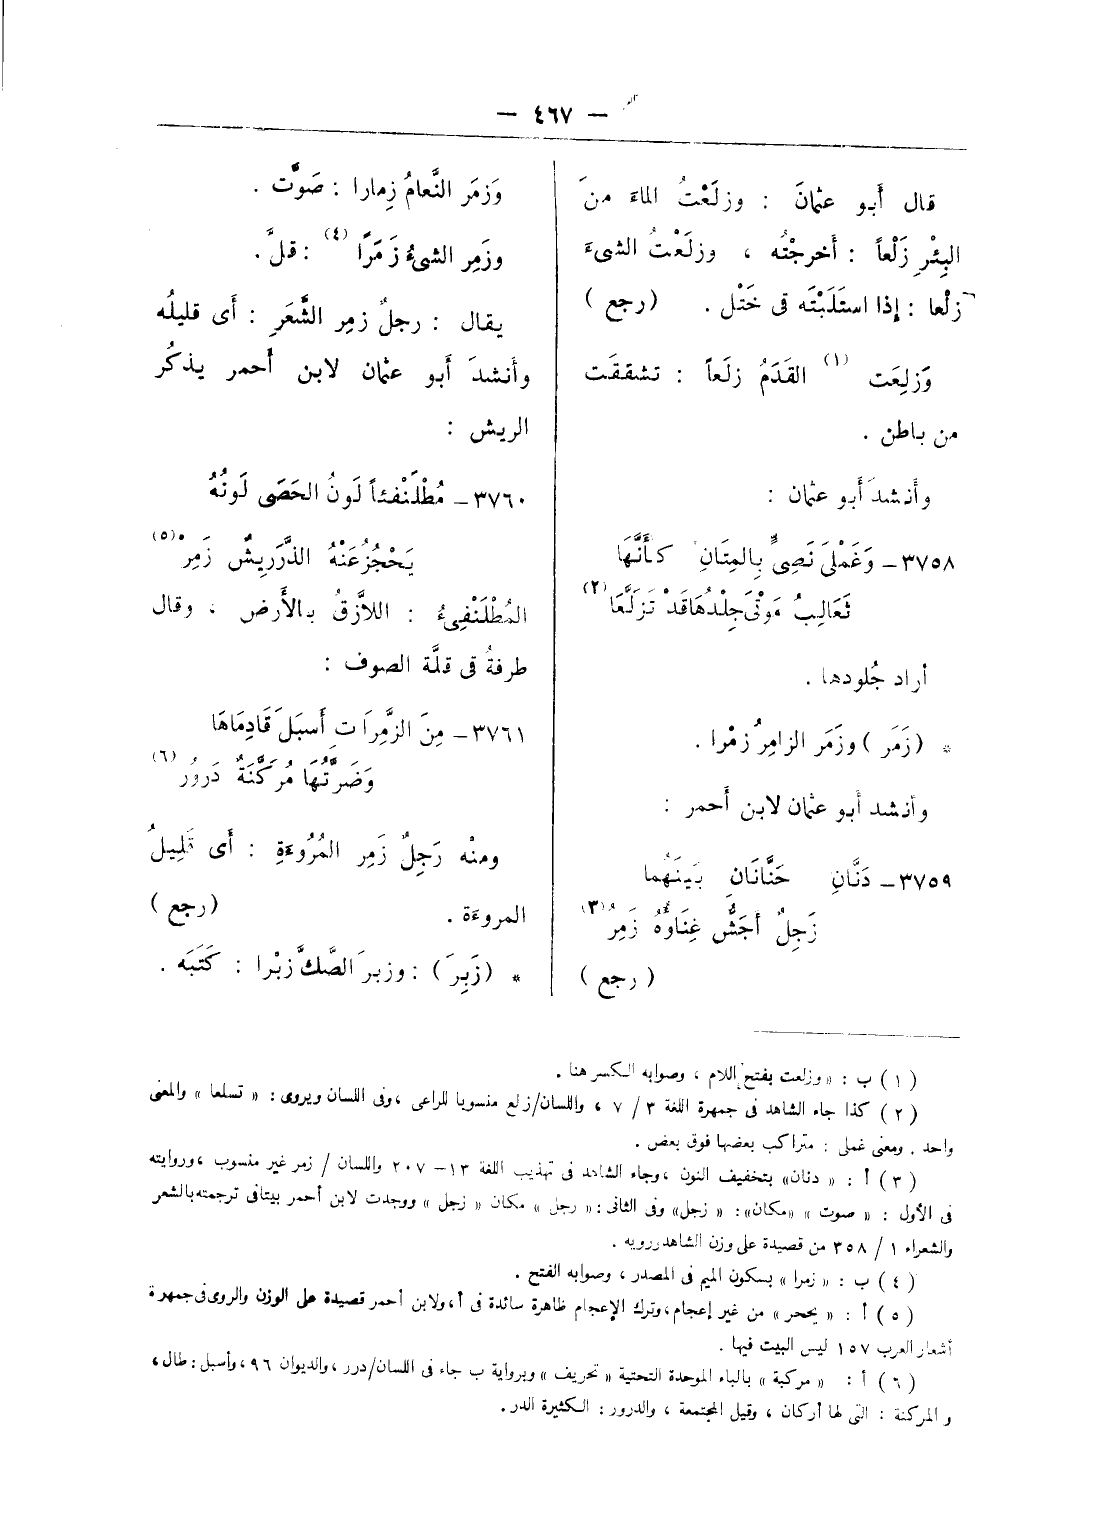 — ٤٦٧ —
قال أَبو عثمانَ : وزلَعْتُ الماءَ منَ
البِئْرِ زَلْعاً : أَخرجْتُه ، وزلَعْتُ الشىءَ
زلْعا : إِذا استَلَبْتَه فى خَتْل . ( رجع )
وَزلِعَت (١) القَدَمُ زلَعاً : تشققَت
من باطن .
وأَنشدَ أَبو عثمان :
٣٧٥٨ ـ وَغَمْلَى نَصِىٍّ بِالمِتَانِ كأَنَّهَا
ثَعَالِبُ مَوْتَى جِلْدُهَا قَدْ تَزَلَّعَا (٢)
أراد جُلودها .
* ( زَمَر ) وزَمَر الزامِرُ زمْرا .
وأنشد أبو عثمان لابن أَحمر :
٣٧٥٩ ـ دَنَّانِ حَنَّانَانِ بَينَهُما
زَجِلٌ أَجَشُّ غِنَاؤُهُ زَمِرُ (٣)
( رجع )
وَزمَر النَّعامُ زِمارا : صَوَّت .
وزَمِر الشىءُ زَمَرًا (٤) : قلَّ .
يقال : رجلٌ زمِر الشَّعَرِ : أَى قليلُه
وأَنشدَ أَبو عثمان لابن أَحمر يذكُر
الريش :
٣٧٦٠ ـ مُطْلَنْفئاً لَونُ الحَصَى لَونُهُ
يَحْجُزُ عَنْهُ الذَّرَّ رِيشٌ زَمِرْ (٥)
المُطْلَنْفِىءُ : اللاَّزِقُ بالأَرض ، وقال
طرفةُ فى قلَّة الصوف :
٣٧٦١ ـ مِنَ الزَّمِرَاتِ أَسبَلَ قَادِمَاهَا
وَضَرَّتُهَا مُرَكَّنَةٌ دَرُورُ (٦)
ومنْه رَجِلٌ زَمِر المُرُوءَةِ : أَى قَلِيلُ
المروءَة . ( رجع )
* ( زَبِرَ ) : وزبرَ الصَّكَّ زبْرا : كَتَبَه .
( ١ ) ب : « وزلعت بفتح اللام ، وصوابه الكسر هنا .
( ٢ ) كذا جاء الشاهد فى جمهرة اللغة ٣ / ٧ ، واللسان/زلع منسوبا للراعى ، وفى اللسان ويروى : « تسلعا » والمعنى
واحد . ومعنى غملى : متراكب بعضها فوق بعض .
( ٣ ) أ : « دنان » بتخفيف النون ، وجاء الشاهد فى تهذيب اللغة ١٣ – ٢٠٧ واللسان / زمر غير منسوب ، وروايته
فى الأول : « صوت » «مكان» : « زجل» وفى الثانى : « رجل » مكان « زجل » ووجدت لابن أحمر بيتا فى ترجمته بالشعر
والشعراء ١ / ٣٥٨ من قصيدة على وزن الشاهد ررويه .
( ٤ ) ب : « زمرا » بسكون الميم فى المصدر ، وصوابه الفتح .
( ٥ ) أ : « يححر » من غير إعجام ، وترك الإعجام ظاهرة سائدة فى أ ، ولابن أحمر قصيدة على الوزن والروى فى جمهرة
أشعار العرب ١٥٧ ليس البيت فيها .
( ٦ ) أ : « مركبة » بالباء الموحدة التحتية « تحريف » وبرواية ب جاء فى اللسان/درر ، والديوان ٩٦ ، وأسبل : طال ،
و المركنة : التى لها أركان ، وقيل المجتمعة ، والدرور : الكثيرة الدر .